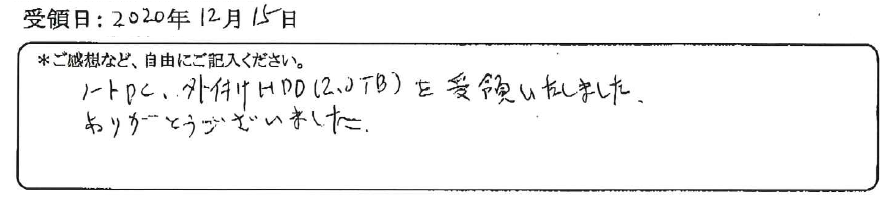 受領日:2020年12月15日
*ご感想など、自由にご記入ください。
ノートPC、外付けHDD(2.0TB)を受領いたしました。
ありがとうございました。